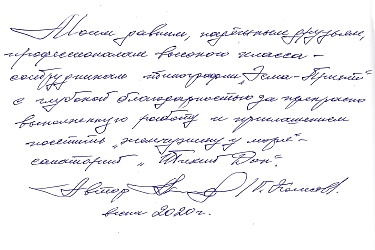 Моим давним, надёжным друзьям,
профессионалам высокого класса -
сотрудникам типографии „Гема-Принт"
с глубокой благодарностью за прекрасно
выполненную работу и приглашением
посетить „жемчужину у моря" -
санаторий „Тихий Дон".
Автор
весна 2020 г.